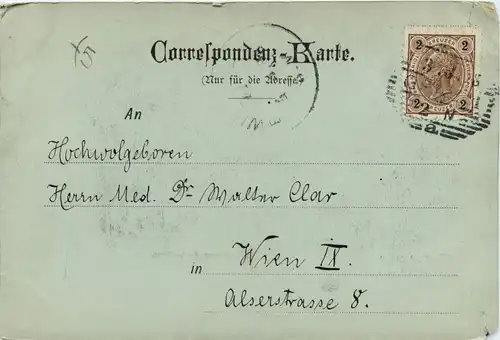 Correspondenz-Karte.
(Nur für die Adresse.)
2 KREUZER 2
2 2
An
Hochwolgeboren
Herrn Med. Dr Walter Clar
in Wien IX.
Alserstrasse 8.